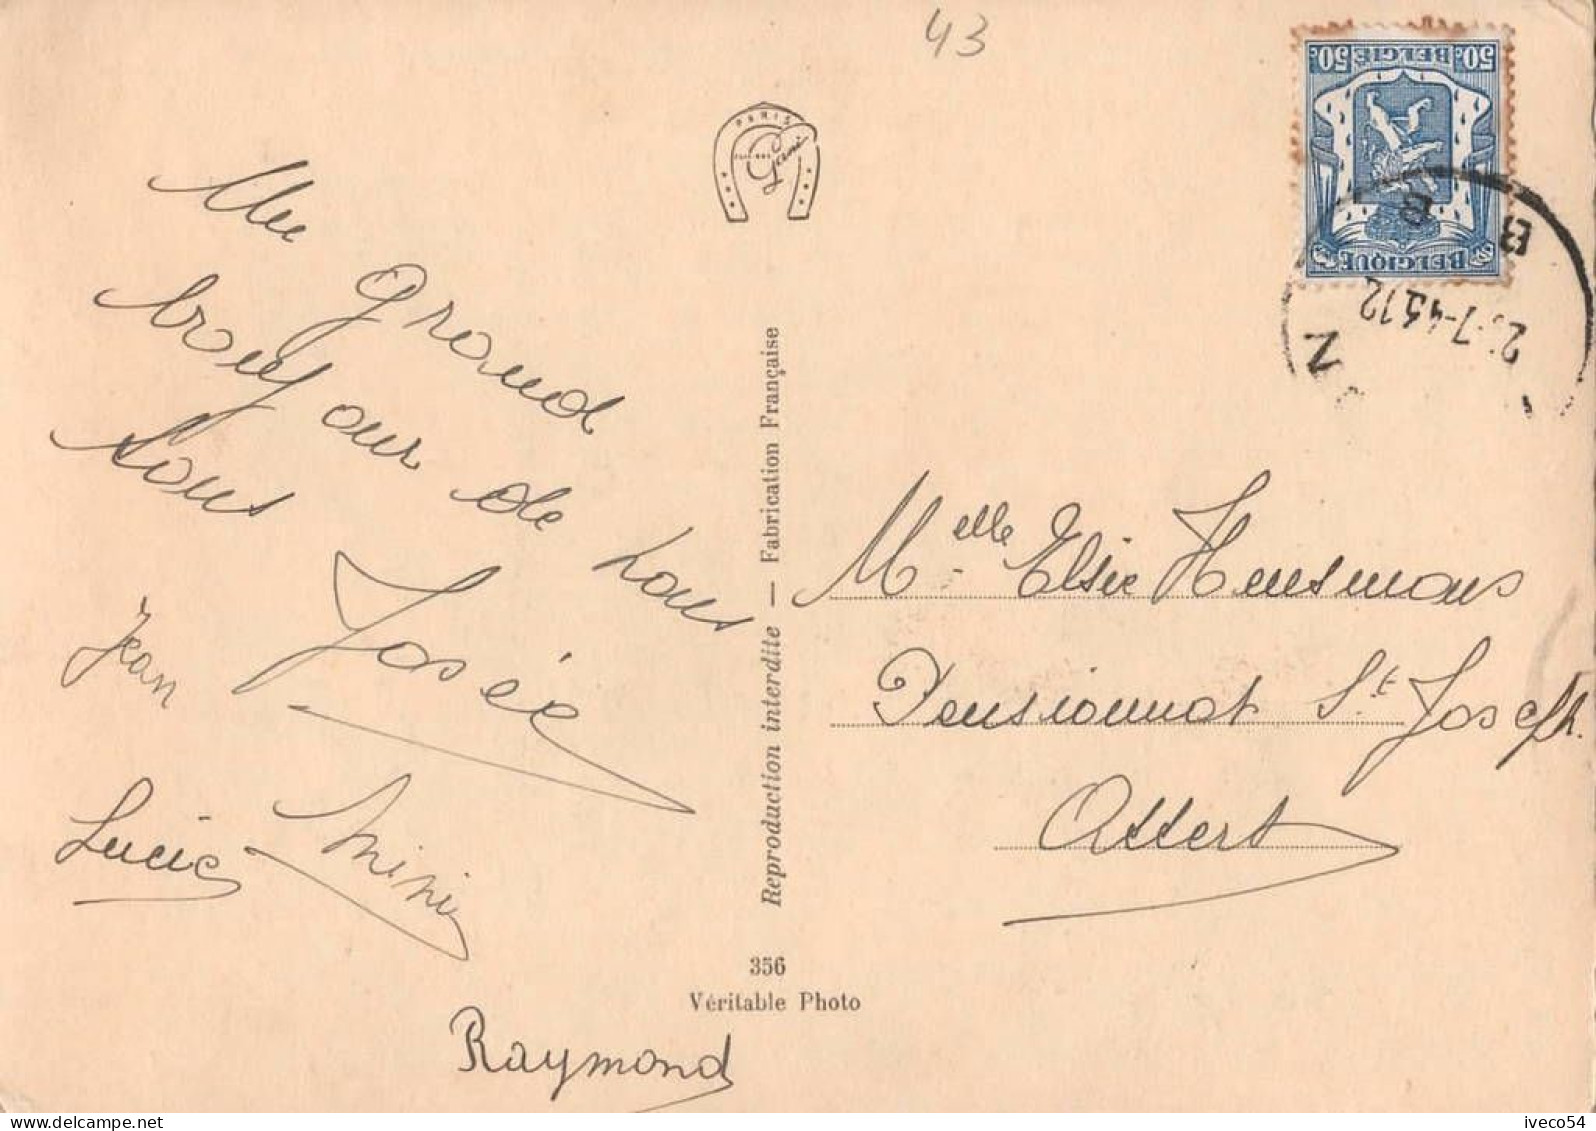 43
PARIS
BELGIQUE
BELGIE
50c 50c
B B
2 -7-45 12
N
Un grand
bonjour de nous
tous
Josée
Jean
Lucie
Mimie
Raymond
Reproduction interdite — Fabrication Française
356
Véritable Photo
Melle Elsie Hensmans
Pensionnat St Joseph.
Attert
delcampe.net
iveco54